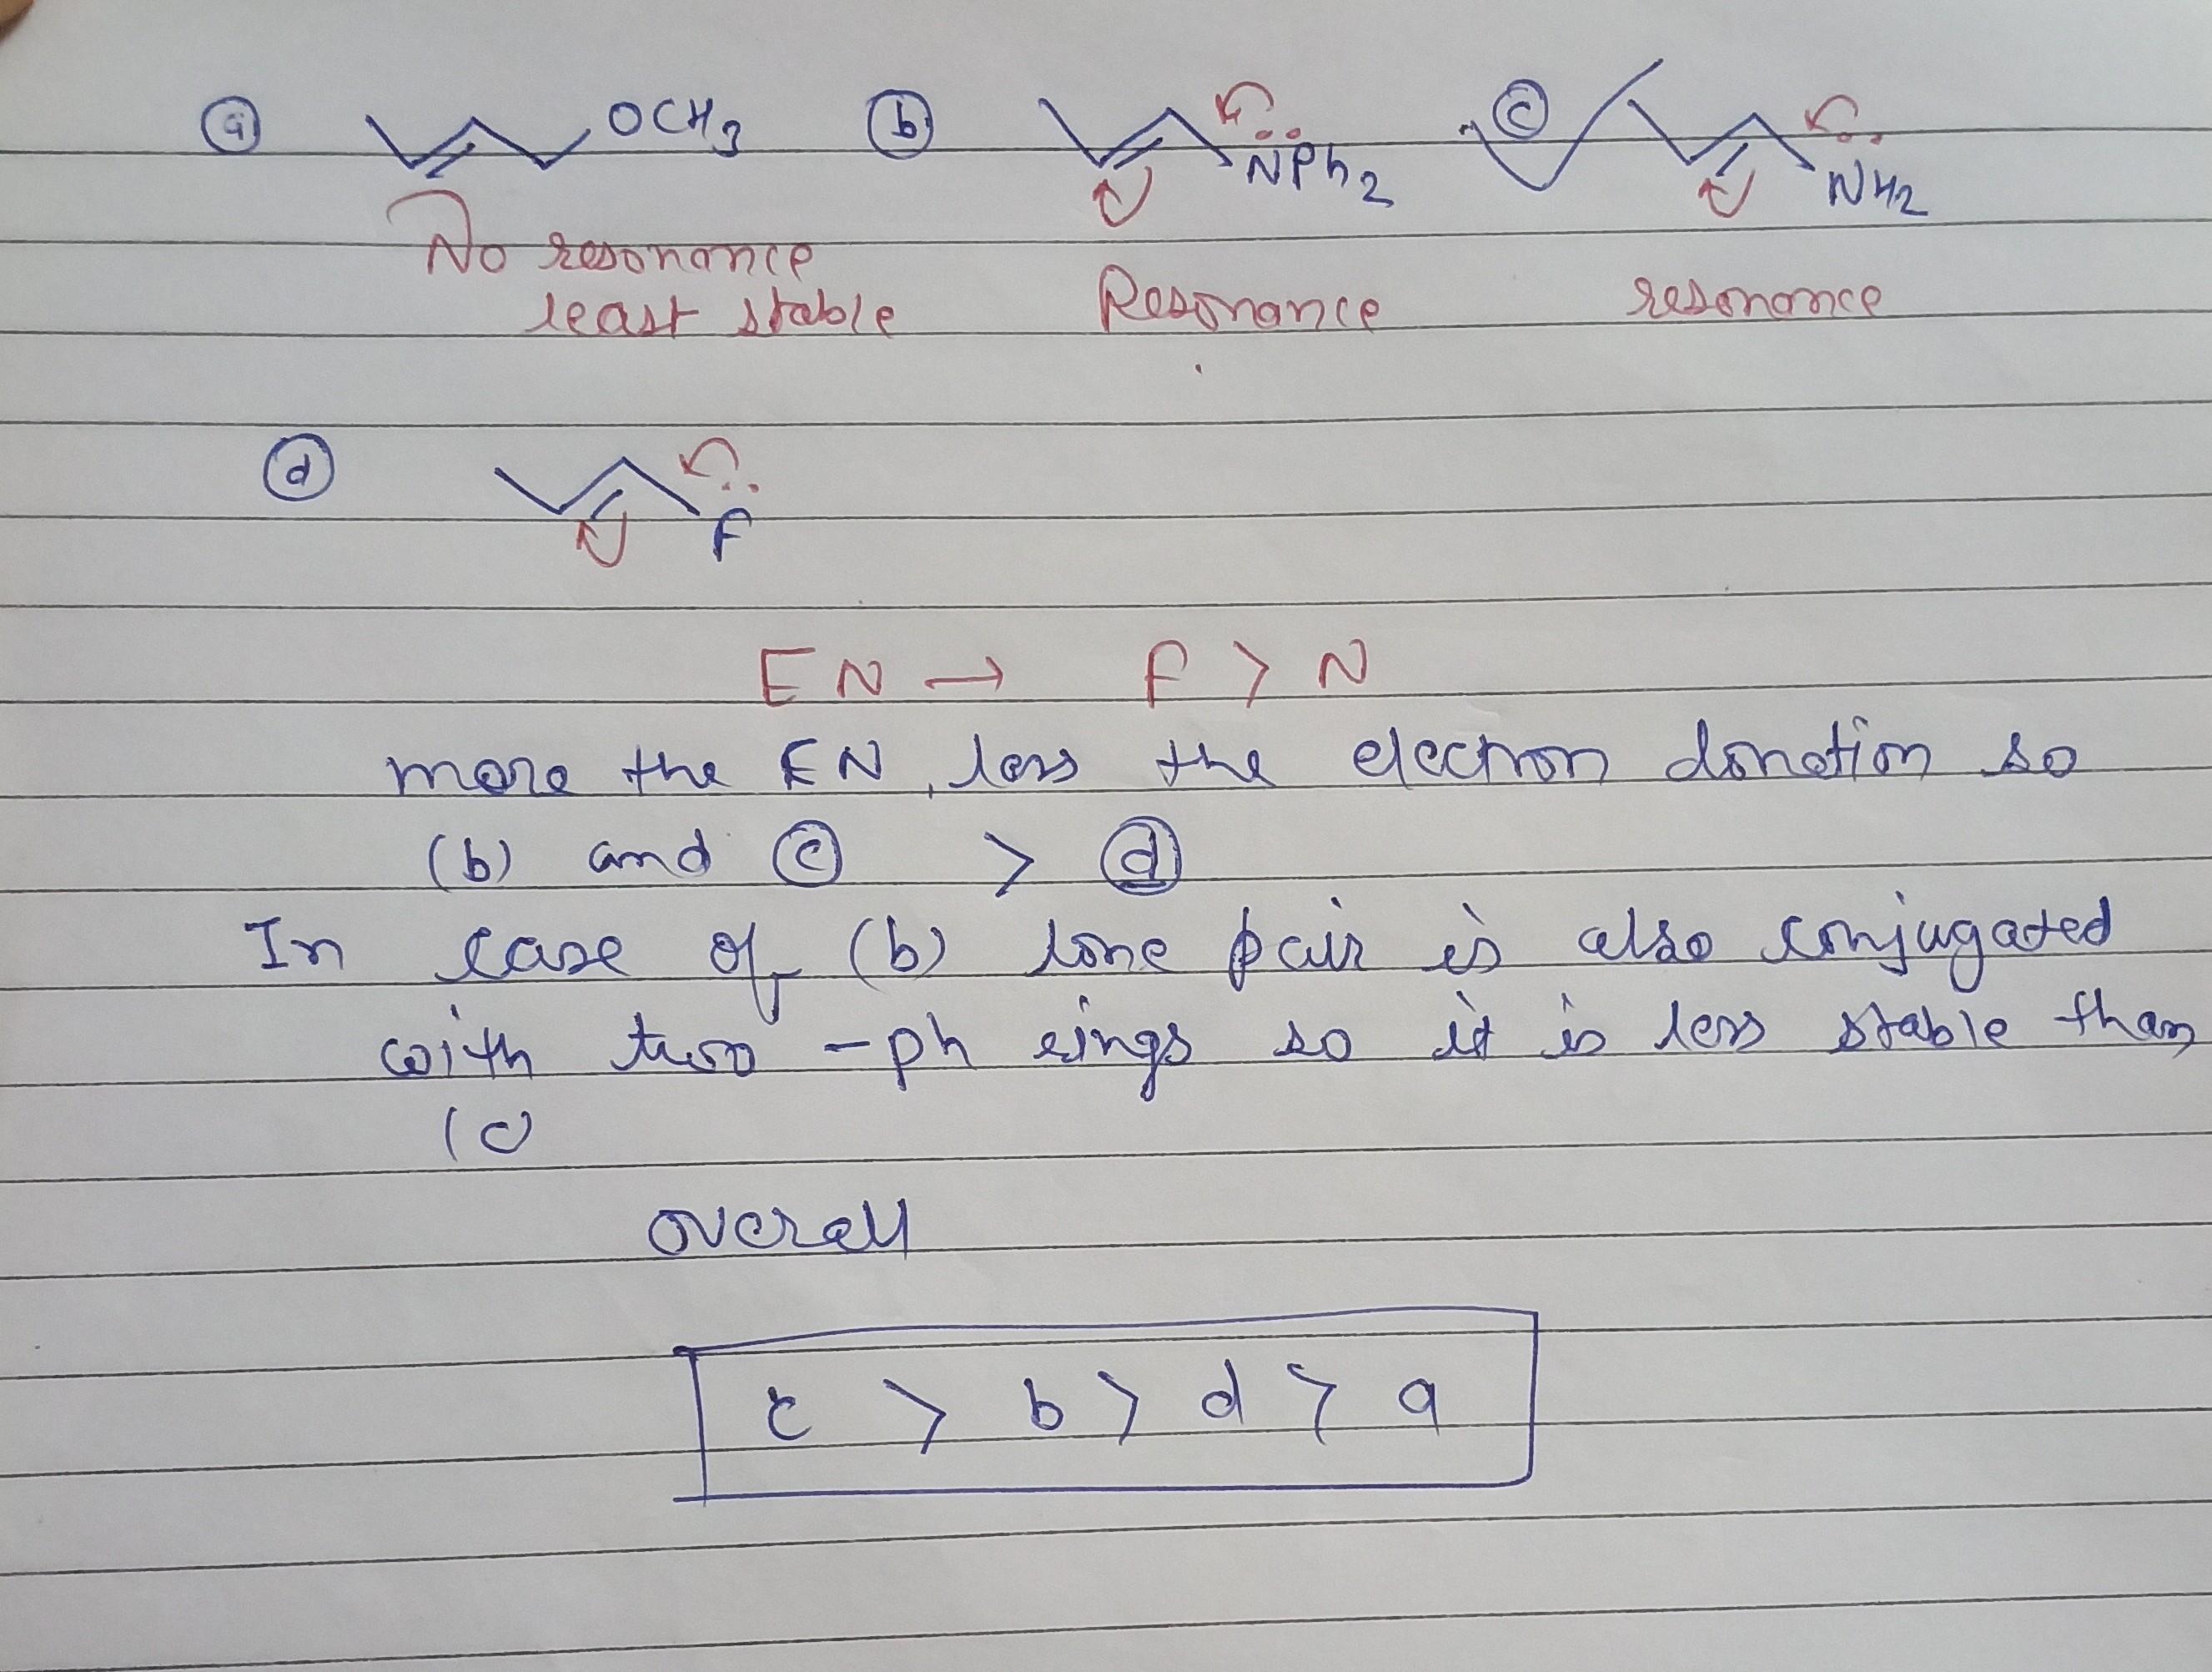 a OCH3 b NPh2 c NH2
No resonance
least stable Resonance resonance
d
F
EN → F > N
more the EN, less the electron donation so
(b) and c > d
In case of (b) lone pair is also conjugated
with two -ph rings so it is less stable than
(c)
overall
c > b > d > a